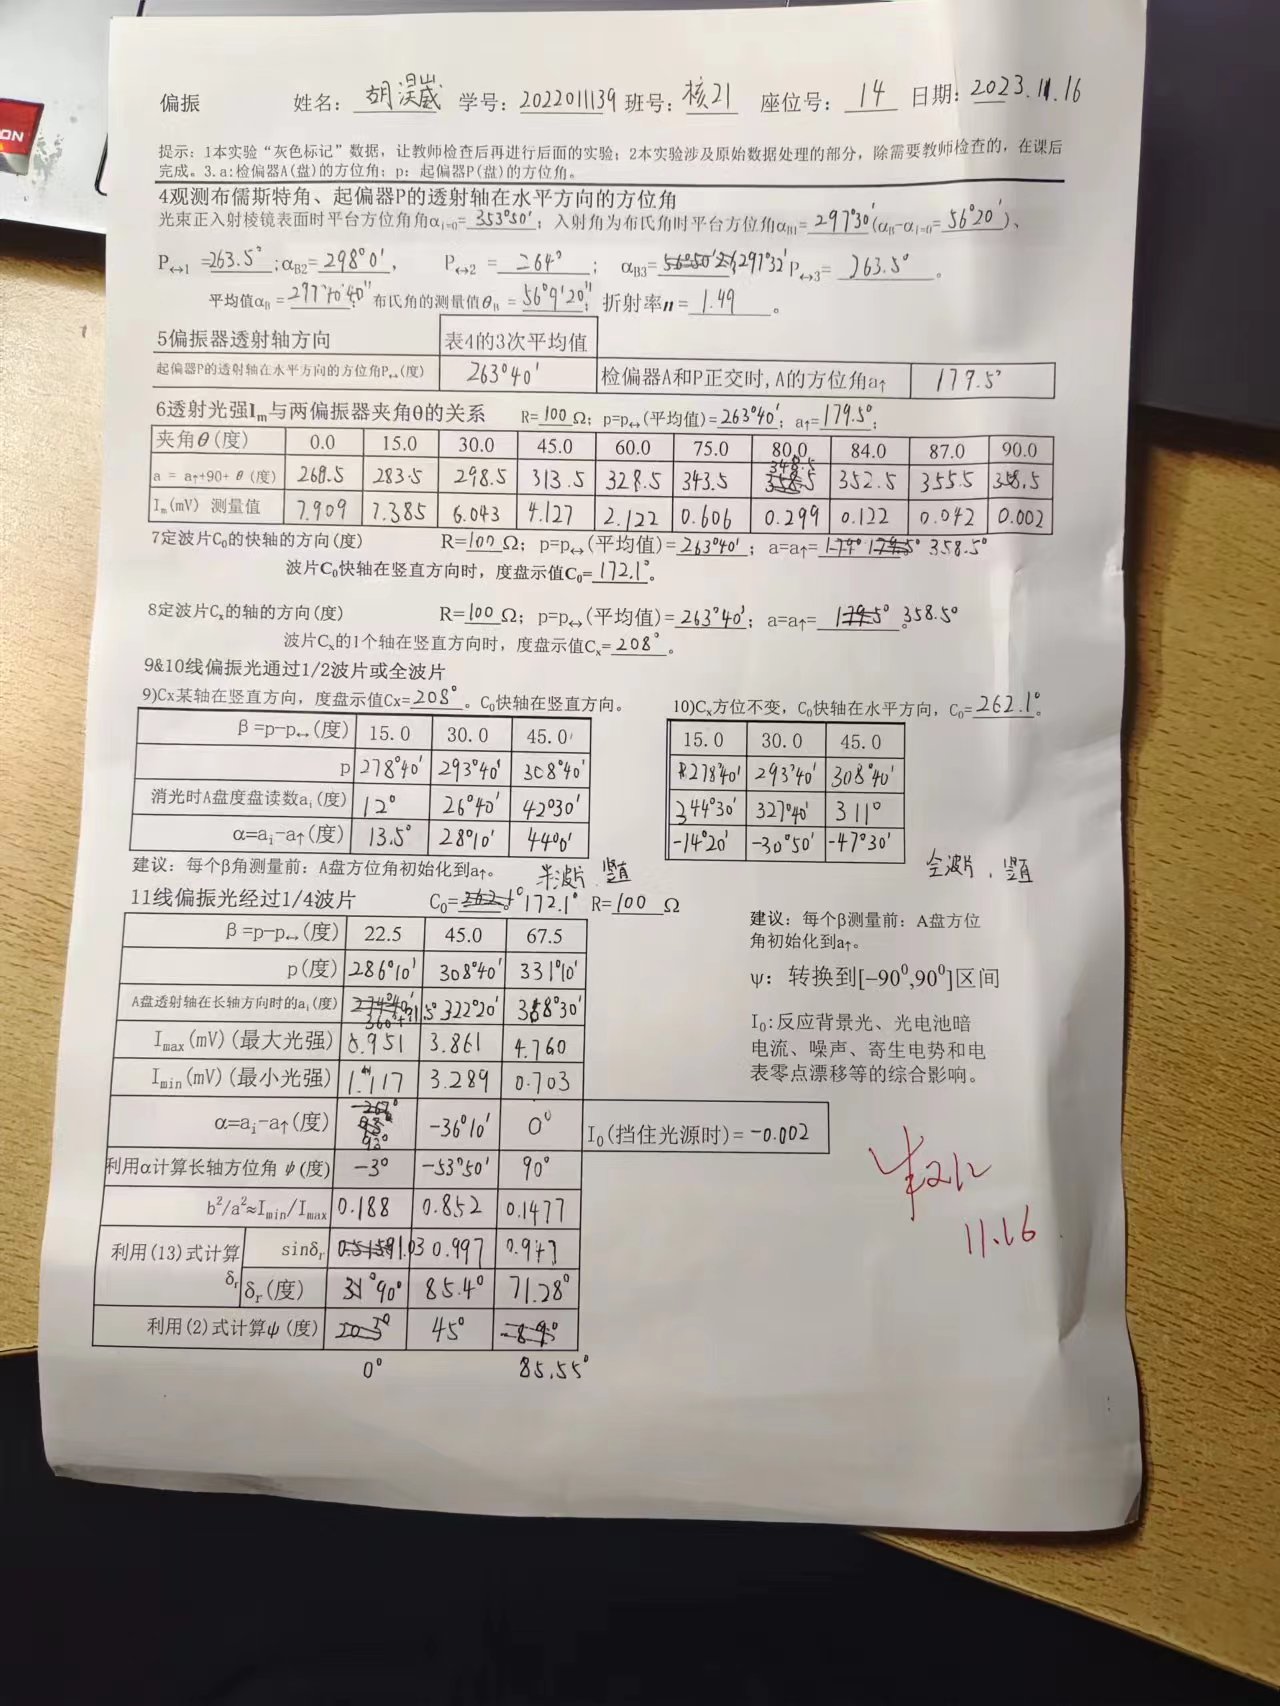 ON
偏振 姓名: 胡淏崴 学号: 2022011139 班号: 核21 座位号: 14 日期: 2023.11.16
提示: 1本实验“灰色标记”数据, 让教师检查后再进行后面的实验; 2本实验涉及原始数据处理的部分, 除需要教师检查的, 在课后
完成。3.a:检偏器A(盘)的方位角; p: 起偏器P(盘)的方位角。
4观测布儒斯特角、起偏器P的透射轴在水平方向的方位角
光束正入射棱镜表面时平台方位角角αi=0= 353°50′; 入射角为布氏角时平台方位角αB1= 297°30′ (αB-αi=0= 56°20′)、
P↔1 =263.5°; αB2= 298°0′, P↔2 = 264°; αB3= 297°32′ P↔3= 263.5°。
平均值αB = 297°40′40″; 布氏角的测量值θB = 56°9′20″; 折射率n= 1.49。
5偏振器透射轴方向 表4的3次平均值
起偏器P的透射轴在水平方向的方位角P↔(度) 263°40′ 检偏器A和P正交时, A的方位角a↑ 179.5°
6透射光强Im与两偏振器夹角θ的关系 R=100Ω; p=p↔(平均值)=263°40′; a↑=179.5°;
夹角θ(度) 0.0 15.0 30.0 45.0 60.0 75.0 80.0 84.0 87.0 90.0
a = a↑+90+ θ(度) 268.5 283.5 298.5 313.5 328.5 343.5 348.5 352.5 355.5 358.5
Im(mV) 测量值 7.909 7.385 6.043 4.127 2.122 0.606 0.299 0.122 0.042 0.002
7定波片C0的快轴的方向(度) R=100Ω; p=p↔(平均值)=263°40′; a=a↑= 358.5°
波片C0快轴在竖直方向时, 度盘示值C0=172.1°。
8定波片Cx的轴的方向(度) R=100Ω; p=p↔(平均值)=263°40′; a=a↑= 179.5°。358.5°
波片Cx的1个轴在竖直方向时, 度盘示值Cx=208°。
9&10线偏振光通过1/2波片或全波片
9)Cx某轴在竖直方向, 度盘示值Cx=208°。C0快轴在竖直方向。 10)Cx方位不变, C0快轴在水平方向, C0=262.1°。
β=p-p↔(度) 15.0 30.0 45.0 15.0 30.0 45.0
p 278°40′ 293°40′ 308°40′ 278°40′ 293°40′ 308°40′
消光时A盘度盘读数ai(度) 12° 26°40′ 42°30′ 344°30′ 327°40′ 311°
α=ai-a↑(度) 13.5° 28°10′ 44°0′ -14°20′ -30°50′ -47°30′
建议: 每个β角测量前: A盘方位角初始化到a↑。 半波片、竖直 全波片、竖直
11线偏振光经过1/4波片 C0= 262.1° 172.1° R=100Ω
β=p-p↔(度) 22.5 45.0 67.5
p(度) 286°10′ 308°40′ 331°10′
A盘透射轴在长轴方向时的ai(度) 322°20′ 358°30′
Imax(mV)(最大光强) 5.951 3.861 4.760
Imin(mV)(最小光强) 1.117 3.289 0.703
α=ai-a↑(度) 93° -36°10′ 0° I0(挡住光源时)= -0.002
利用α计算长轴方位角 ψ(度) -3° -53°50′ 90°
b²/a²≈Imin/Imax 0.188 0.852 0.1477
利用(13)式计算δr sinδr 1.03 0.997 0.947
δr(度) 90° 85.4° 71.28°
利用(2)式计算ψ(度) 45°
0° 85.55°
建议: 每个β测量前: A盘方位
角初始化到a↑。
ψ: 转换到[-90⁰,90⁰]区间
I0:反应背景光、光电池暗
电流、噪声、寄生电势和电
表零点漂移等的综合影响。
11.16